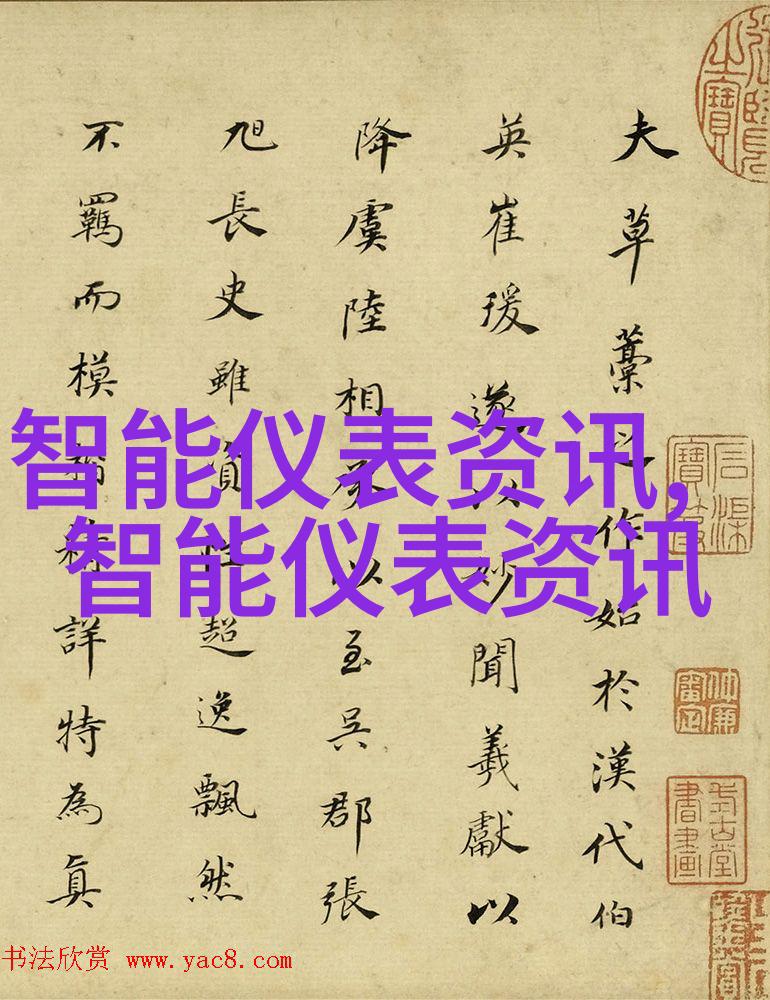 夫草藁之作始於漢代伯
英崔瑗遂以妙聞羲獻以
降虞陸相承以至吳郡張
旭長史雖資性超逸飄然
不羈而模楷精詳特為真
智能仪表资讯,
智能仪表资讯
书法欣赏 www.yac8.com